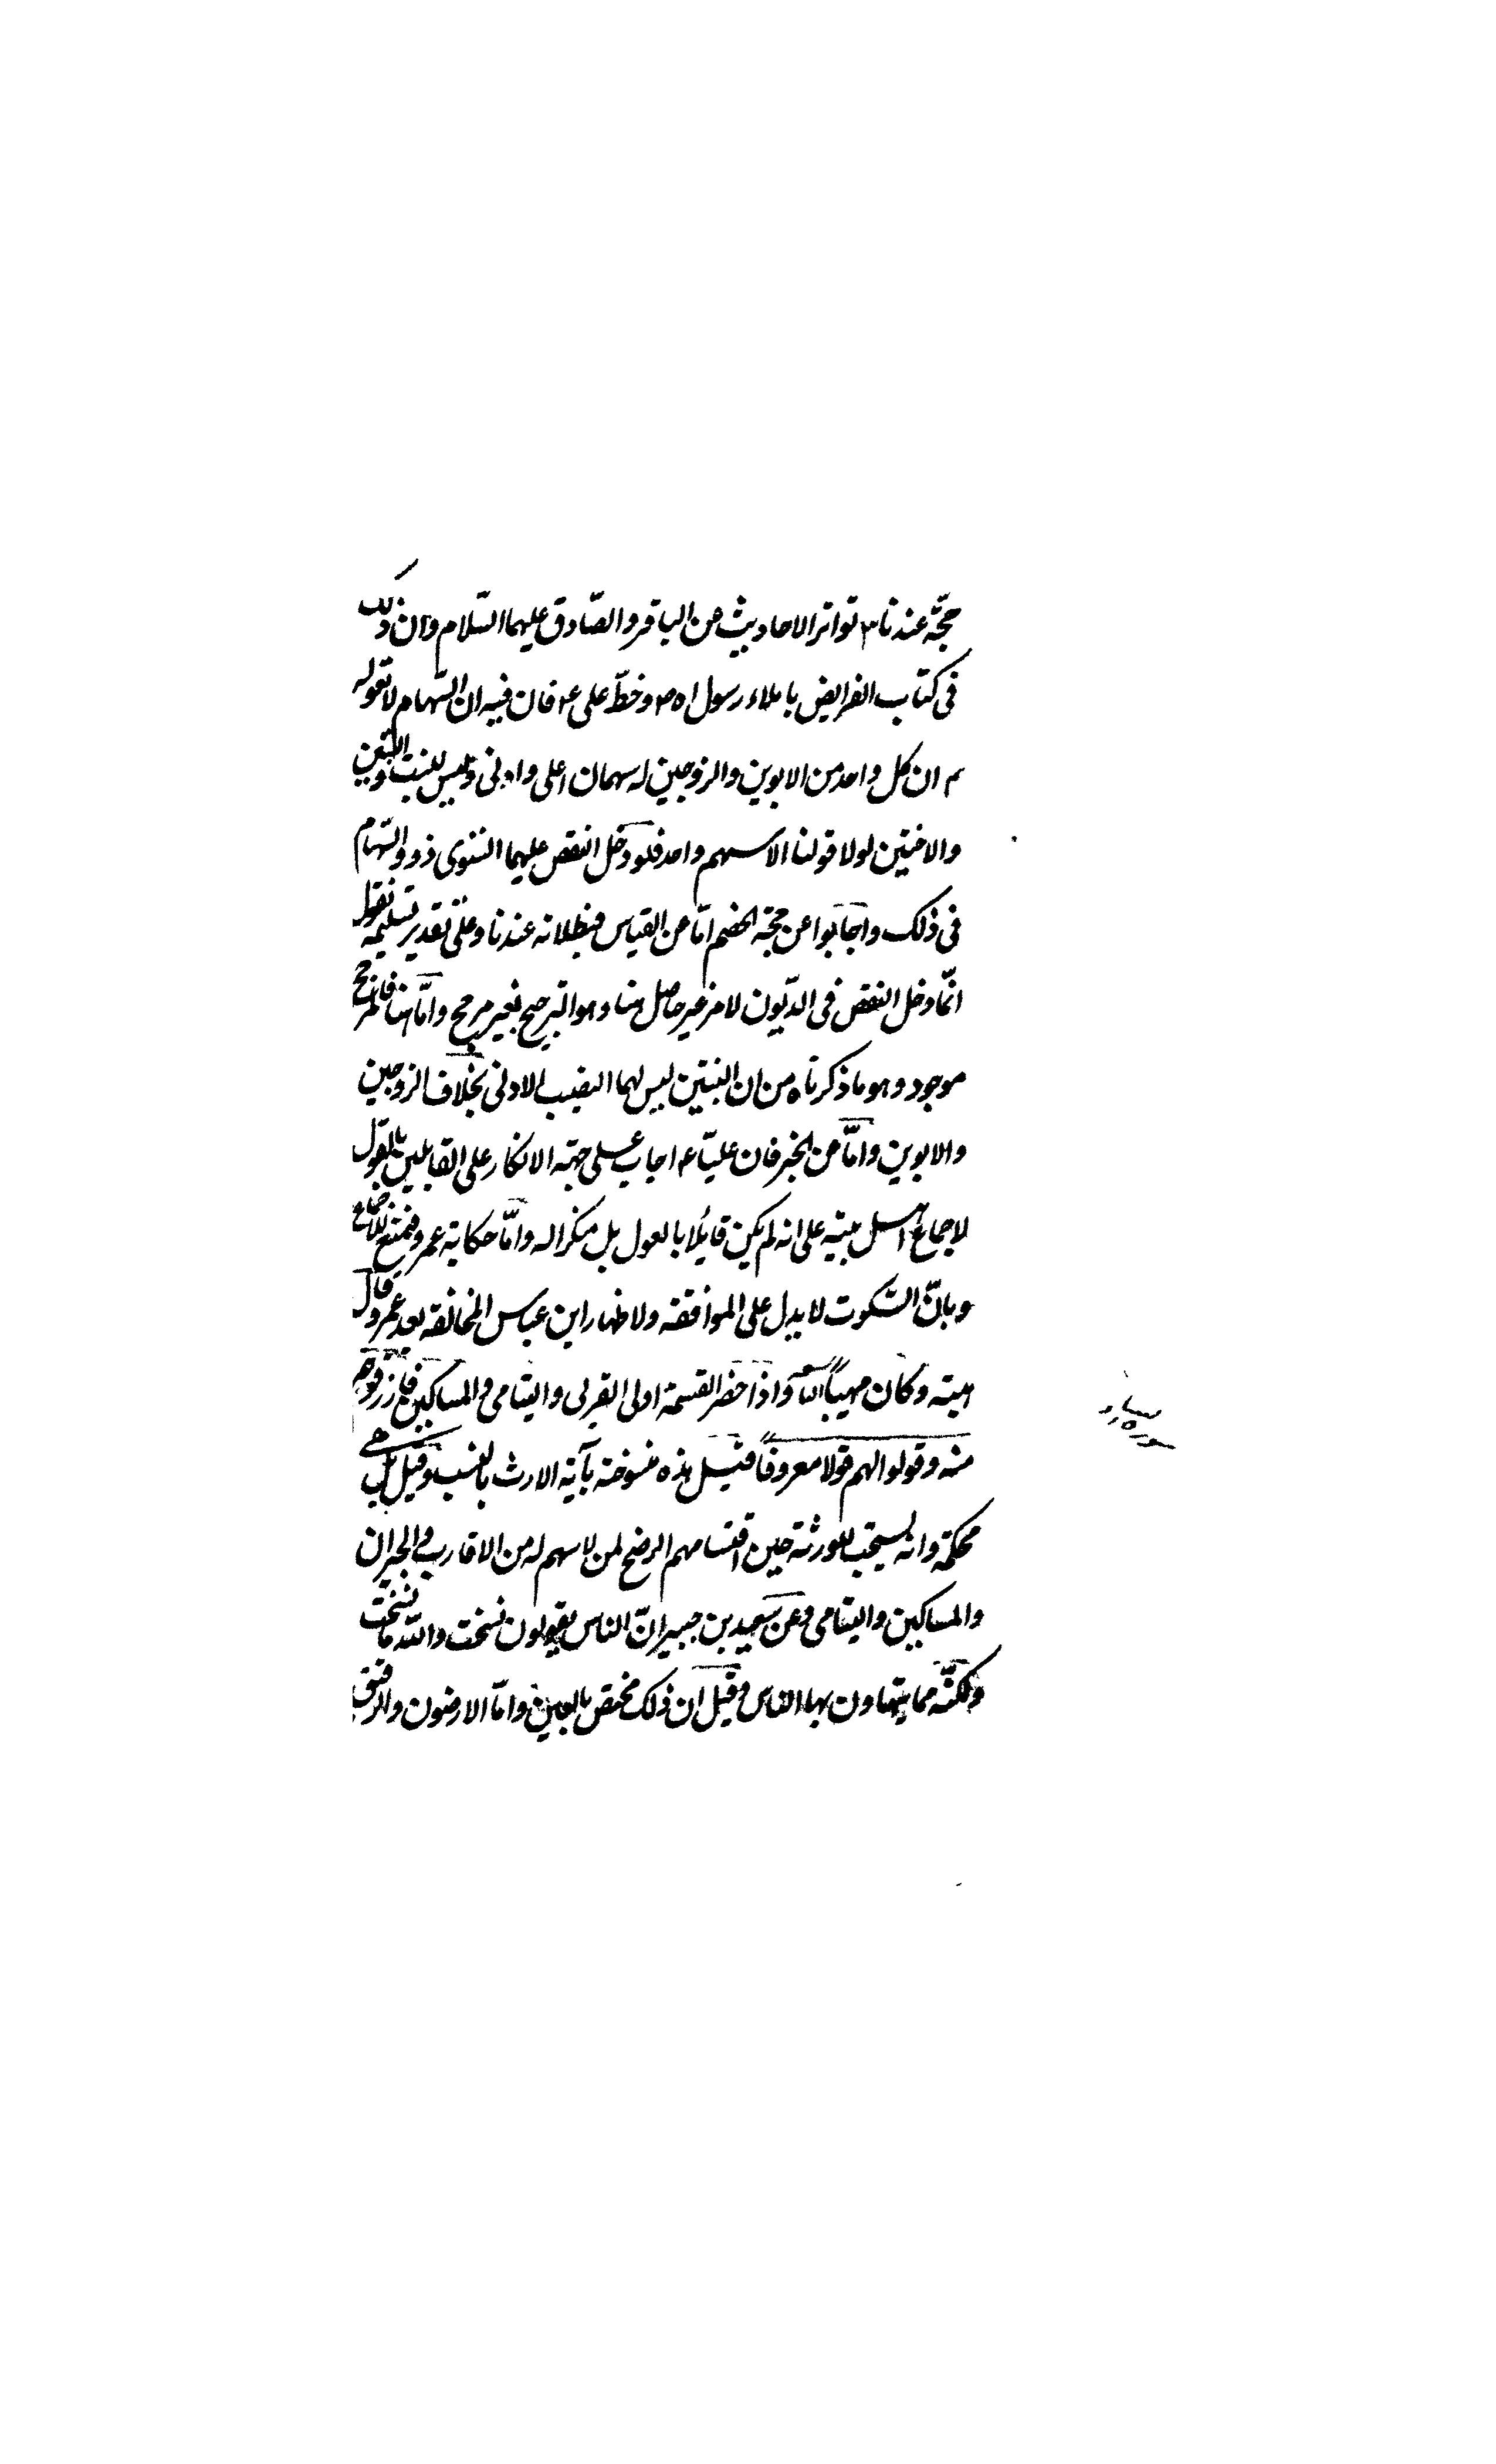 حجّة عندنا ٢ تواتر الاحاديث عن الباقر والصّادق عليهما السّلام وان ذلك
فى كتاب الفرايض باملاء رسول اه ص وخطّ على ع فان فيه ان السّهام لا تعول
٣ ان كل واحد من الابوين والزوجين له سهمان اعلى وادنى وليس للبنت والبنتين
والاختين لولا قولنا الا سهم واحد فلو دخل النقص عليهما استوى ذوو السّهام
فى ذلك واجابوا عن حجّة الخصم امّا عن القياس فبطلانه عندنا وعلى تقدير تسليمه نقول
انّما دخل النقص فى الدّيون لامر غير حاصل هنا وهو الترجيح بغير مرجح وامّا هنا فالمرجح
موجود وهو ما ذكرناه من ان البنتين ليس لهما النصيب الادنى بخلاف الزوجين
والابوين وامّا عن الخبر فان عليّا ع اجاب على جهة الانكار على القايلين بالعول
لاجماع اهل بيته على انه لم يكن قايلًا بالعول بل منكرا له وامّا حكاية عمر فنمنع للاجماع
وبانّ السّكوت لا يدل على الموافقة ولاظهار ابن عباس المخالفة بعد عمر وقال
هبته وكان مهيبًا واذا حضر القسمة اولى القربى واليتامى والمساكين فارزقوهم
منه وقولوا لهم قولا معروفًا قيل هذه منسوخة بآية الارث بالنسب وقيل بل هى
محكمة وانه يستحب للورثة حين اقتسامهم الرضخ لمن لا سهم له من الاقارب والجيران
والمساكين واليتامى وعن سعيد بن جبير انّ الناس يقولون نسخت والله ما نسخت
ولكنّه مما يتهاون بها الناس وقيل ان ذلك مختص بالعين وامّا الارضون والرقيق